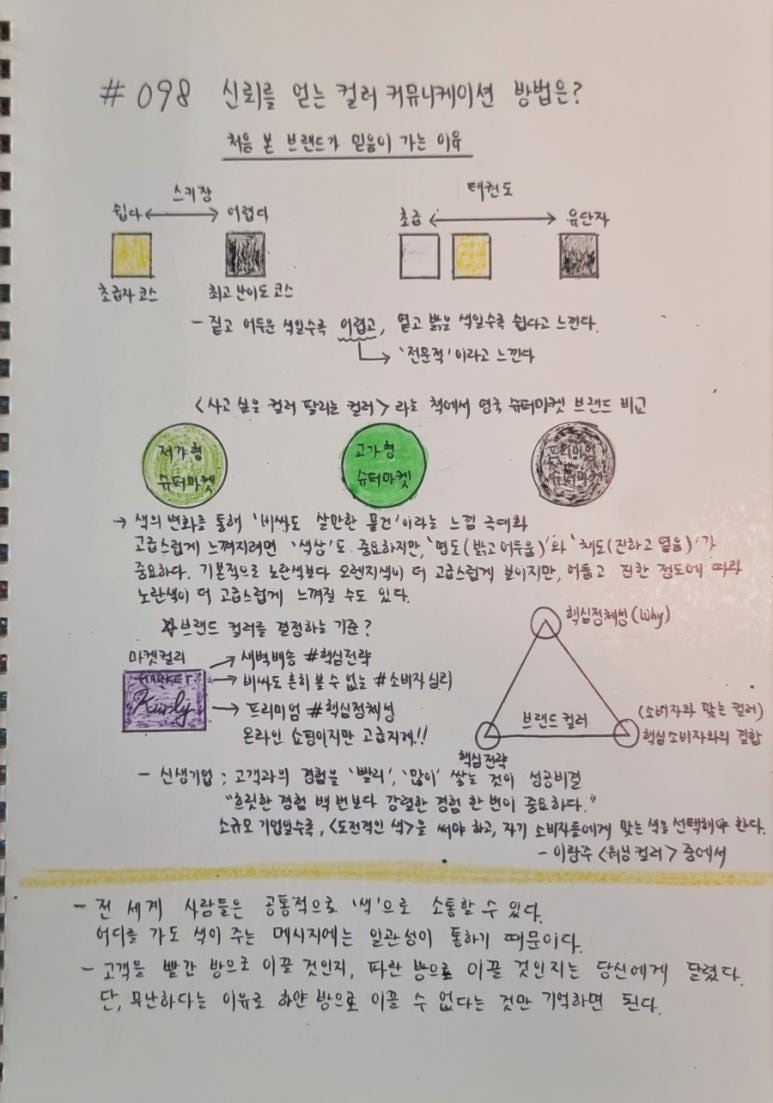 #098 신뢰를 얻는 컬러 커뮤니케이션 방법은?
처음 본 브랜드가 믿음이 가는 이유
스키장
쉽다 어렵다
초급자 코스 최고난이도 코스
태권도
초급 유단자
- 짙고 어두운 색일수록 어렵고, 옅고 밝은 색일수록 쉽다고 느낀다.
'전문적'이라고 느낀다
<사고 싶은 컬러 팔리는 컬러>라는 책에서 영국 슈퍼마켓 브랜드 비교
저가형 슈퍼마켓
고가형 슈퍼마켓
프리미엄 슈퍼마켓
→ 색의 변화를 통해 '비싸도 살만한 물건'이라는 느낌 극대화
고급스럽게 느껴지려면 '색상'도 중요하지만, '명도(밝고 어두움)'와 '채도(진하고 옅음)'가
중요하다. 기본적으로 노란색보다 오렌지색이 더 고급스럽게 보이지만, 어둡고 진한 정도에 따라
노란색이 더 고급스럽게 느껴질 수도 있다.
브랜드 컬러를 결정하는 기준?
마켓컬리
MARKET
Kurly
→ 새벽배송 #핵심전략
→ 비싸도 흔히 볼 수 없는 #소비자심리
→ 프리미엄 #핵심정체성
온라인 쇼핑이지만 고급지게!!
핵심정체성(Why)
브랜드 컬러
(소비자와 맞는 컬러)
핵심소비자와의 결합
핵심전략
- 신생기업 ; 고객과의 경험을 '빨리', '많이' 쌓는 것이 성공비결
"흐릿한 경험 백 번보다 강렬한 경험 한 번이 중요하다."
소규모 기업일수록, <도전적인 색>을 써야 하고, 자기 소비자들에게 맞는 색을 선택해야 한다.
- 이랑주 <위닝 컬러> 중에서
- 전 세계 사람들은 공통적으로 '색'으로 소통할 수 있다.
어디를 가도 색이 주는 메시지에는 일관성이 통하기 때문이다.
- 고객을 빨간 방으로 이끌 것인지, 파란 방으로 이끌 것인지는 당신에게 달렸다.
단, 무난하다는 이유로 하얀 방으로 이끌 수 없다는 것만 기억하면 된다.